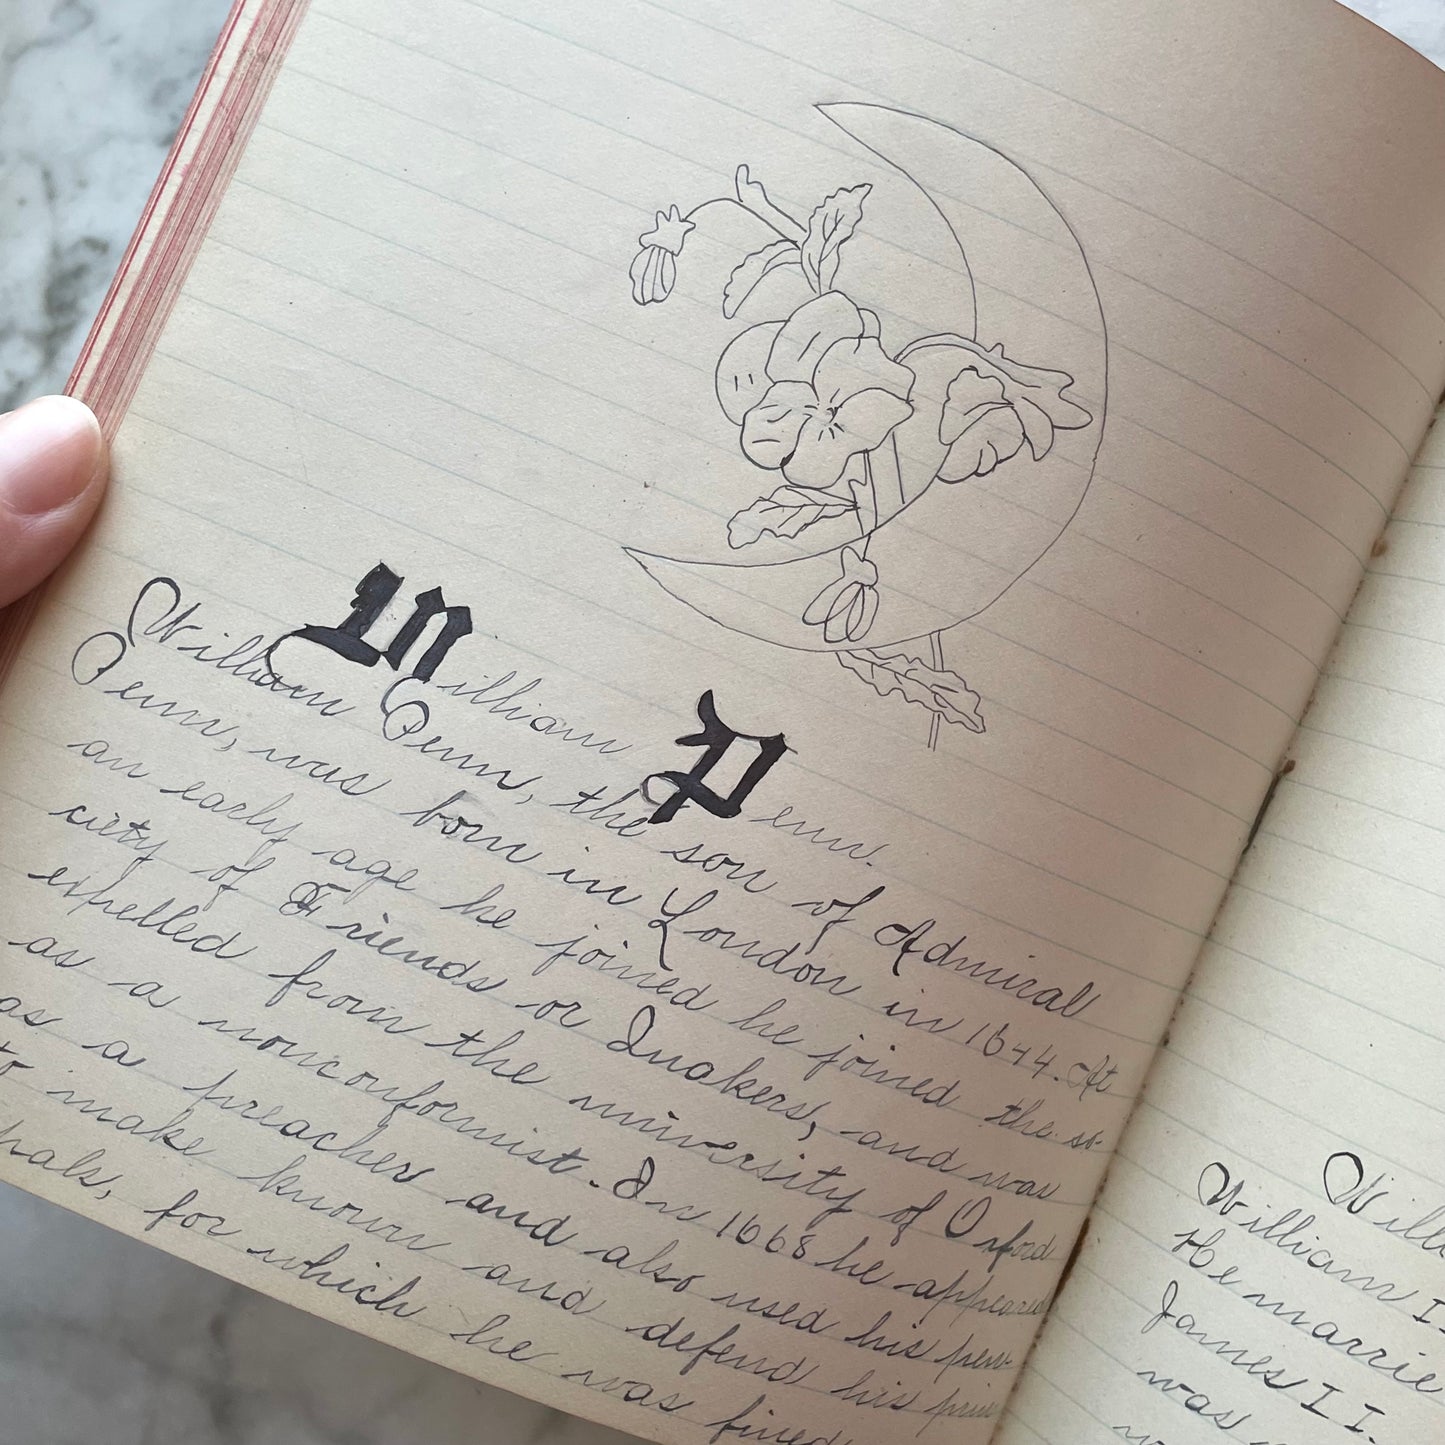 William Penn.
William Penn, the son of Admiral
Penn, was born in London in 1644. At
an early age he joined he joined the so-
ciety of Friends or Quakers, and was
expelled from the university of Oxford
as a nonconformist. In 1668 he appeared
as a preacher and also used his pen
to make known and defend his prin
pals, for which he was fined
Will
William I
He marrie
James II.
was